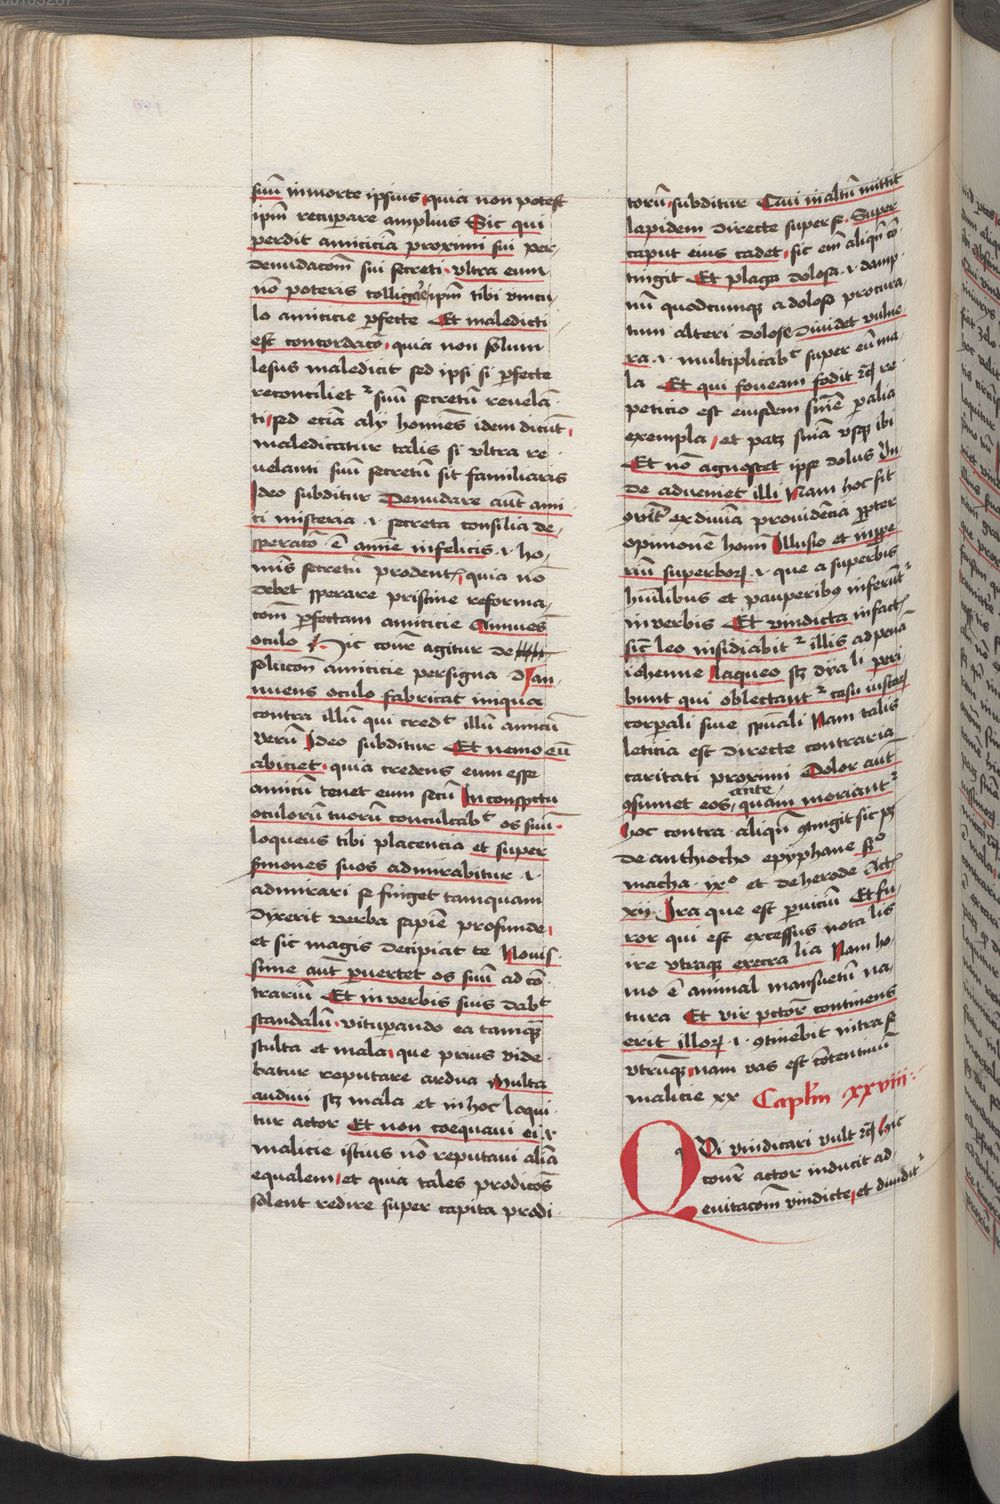 suū in morte ipsius quia non potest
ipm̄ recuperare amplius Sic qui
perdit amiciciā proximi sui per
denudacōm sui secreti vltra eum
nō poteris colligere ipm̄ tibi vincu
lo amicicie perfecte Et maledicti
est concordacō quia non solum
lesus maledicit sed ipsi si perfecte
reconciliet suū secretū reuelā
ti sed eciā alij homīes idem dicūt
maledicatur talis si vltra re
uelanti suū secretū sit familiaris
Ideo subditur Denudare aūt ami
ci misteria .i. secreta consilia de
speracō ē anīe infelicis .i. ho
mīs secretū prodentꝭ quia nō
debet sperare pristine reforma
cōm perfectam amicicie Annuēs
oculo Hic cōnr agitur de
solucōm amicicie per signa D an
nuens oculo fabricat iniqua
contra illū qui credit illū amicū
verū Ideo subditur Et nemo eū
abiciet quia credens eum esse
amicū tenet eum secū In conspectu
oculorū tuorū conculcabit os suū
loquens tibi placencia et super
sermones suos admirabitur .i.
admirari se finget tamquam
dyxerit verba sapiē profunde
et sic magis decipiat te Nouis
sime aūt peruertet os suū ad cō
trariū Et in verbis suis dabit
scandalū vituperando ea tamqȝ
stulta et mala que prius vide
batur reputare ardua Multa
audiui scȝ mala et in hoc loqui
tur actor Et non coequaui ei .i.
malicie istius nō reputaui aliā
equalem et quia tales prodicōes
solent redire super capita prodi
torū subditur Qui in altū mittit
lapidem directe super se Super
caput eius cadet sic em̄ aliqn̄ cō
tingit Et plaga dolosa .i. damp
nū quodcumqȝ a doloso procura
tum alteri dolose diuidet vulne
ra .i. multiplicabit super eū ma
la Et qui foueam fodit rc̄ re
peticio est eiusdem sn̄ie per alia
exempla et patȝ sn̄ia vsqȝ ibi
Et nō agnoscet ipse dolus Vn
de adueniet illi Nam hoc fit
ex diuīa prouidēcia propter
opinionē homī Illusio et inprope
riū superborꝝ .i. que a superbis
humilibus et pauperibꝯ inferūtur
in verbis Et vindicta in factꝭ
sicut leo insidiabitur illis ad penā
iehenne Laqueo scȝ dyaboli peri
bunt qui oblectantur casu iustorꝝ
corporali siue spūali Nam talis
leticia est directe contraria
caritati proximi Dolor aūt
ꝯsumet eos ante quam moriantur
hoc contra aliqn̄ ꝯtingit sic patȝ
de anthiocho epyphane
macha ixº et de herode Actꝭ
xij Ira que est peruiciū Et fu
ror qui est excessus nota lis
ire vtraqȝ execra lia Nam ho
mo ē animal mansuetū na
tura Et vir pctōr continens
erit illorꝝ .i. ꝯtinebit intra se
vtrūqȝ nam vas est cōtentiuū
malicie xx Caplm̄ xxviii
Qui vindicari vult rc̄ hic
cōnr actor inducit ad
euitacōm vindicte et diuiditur